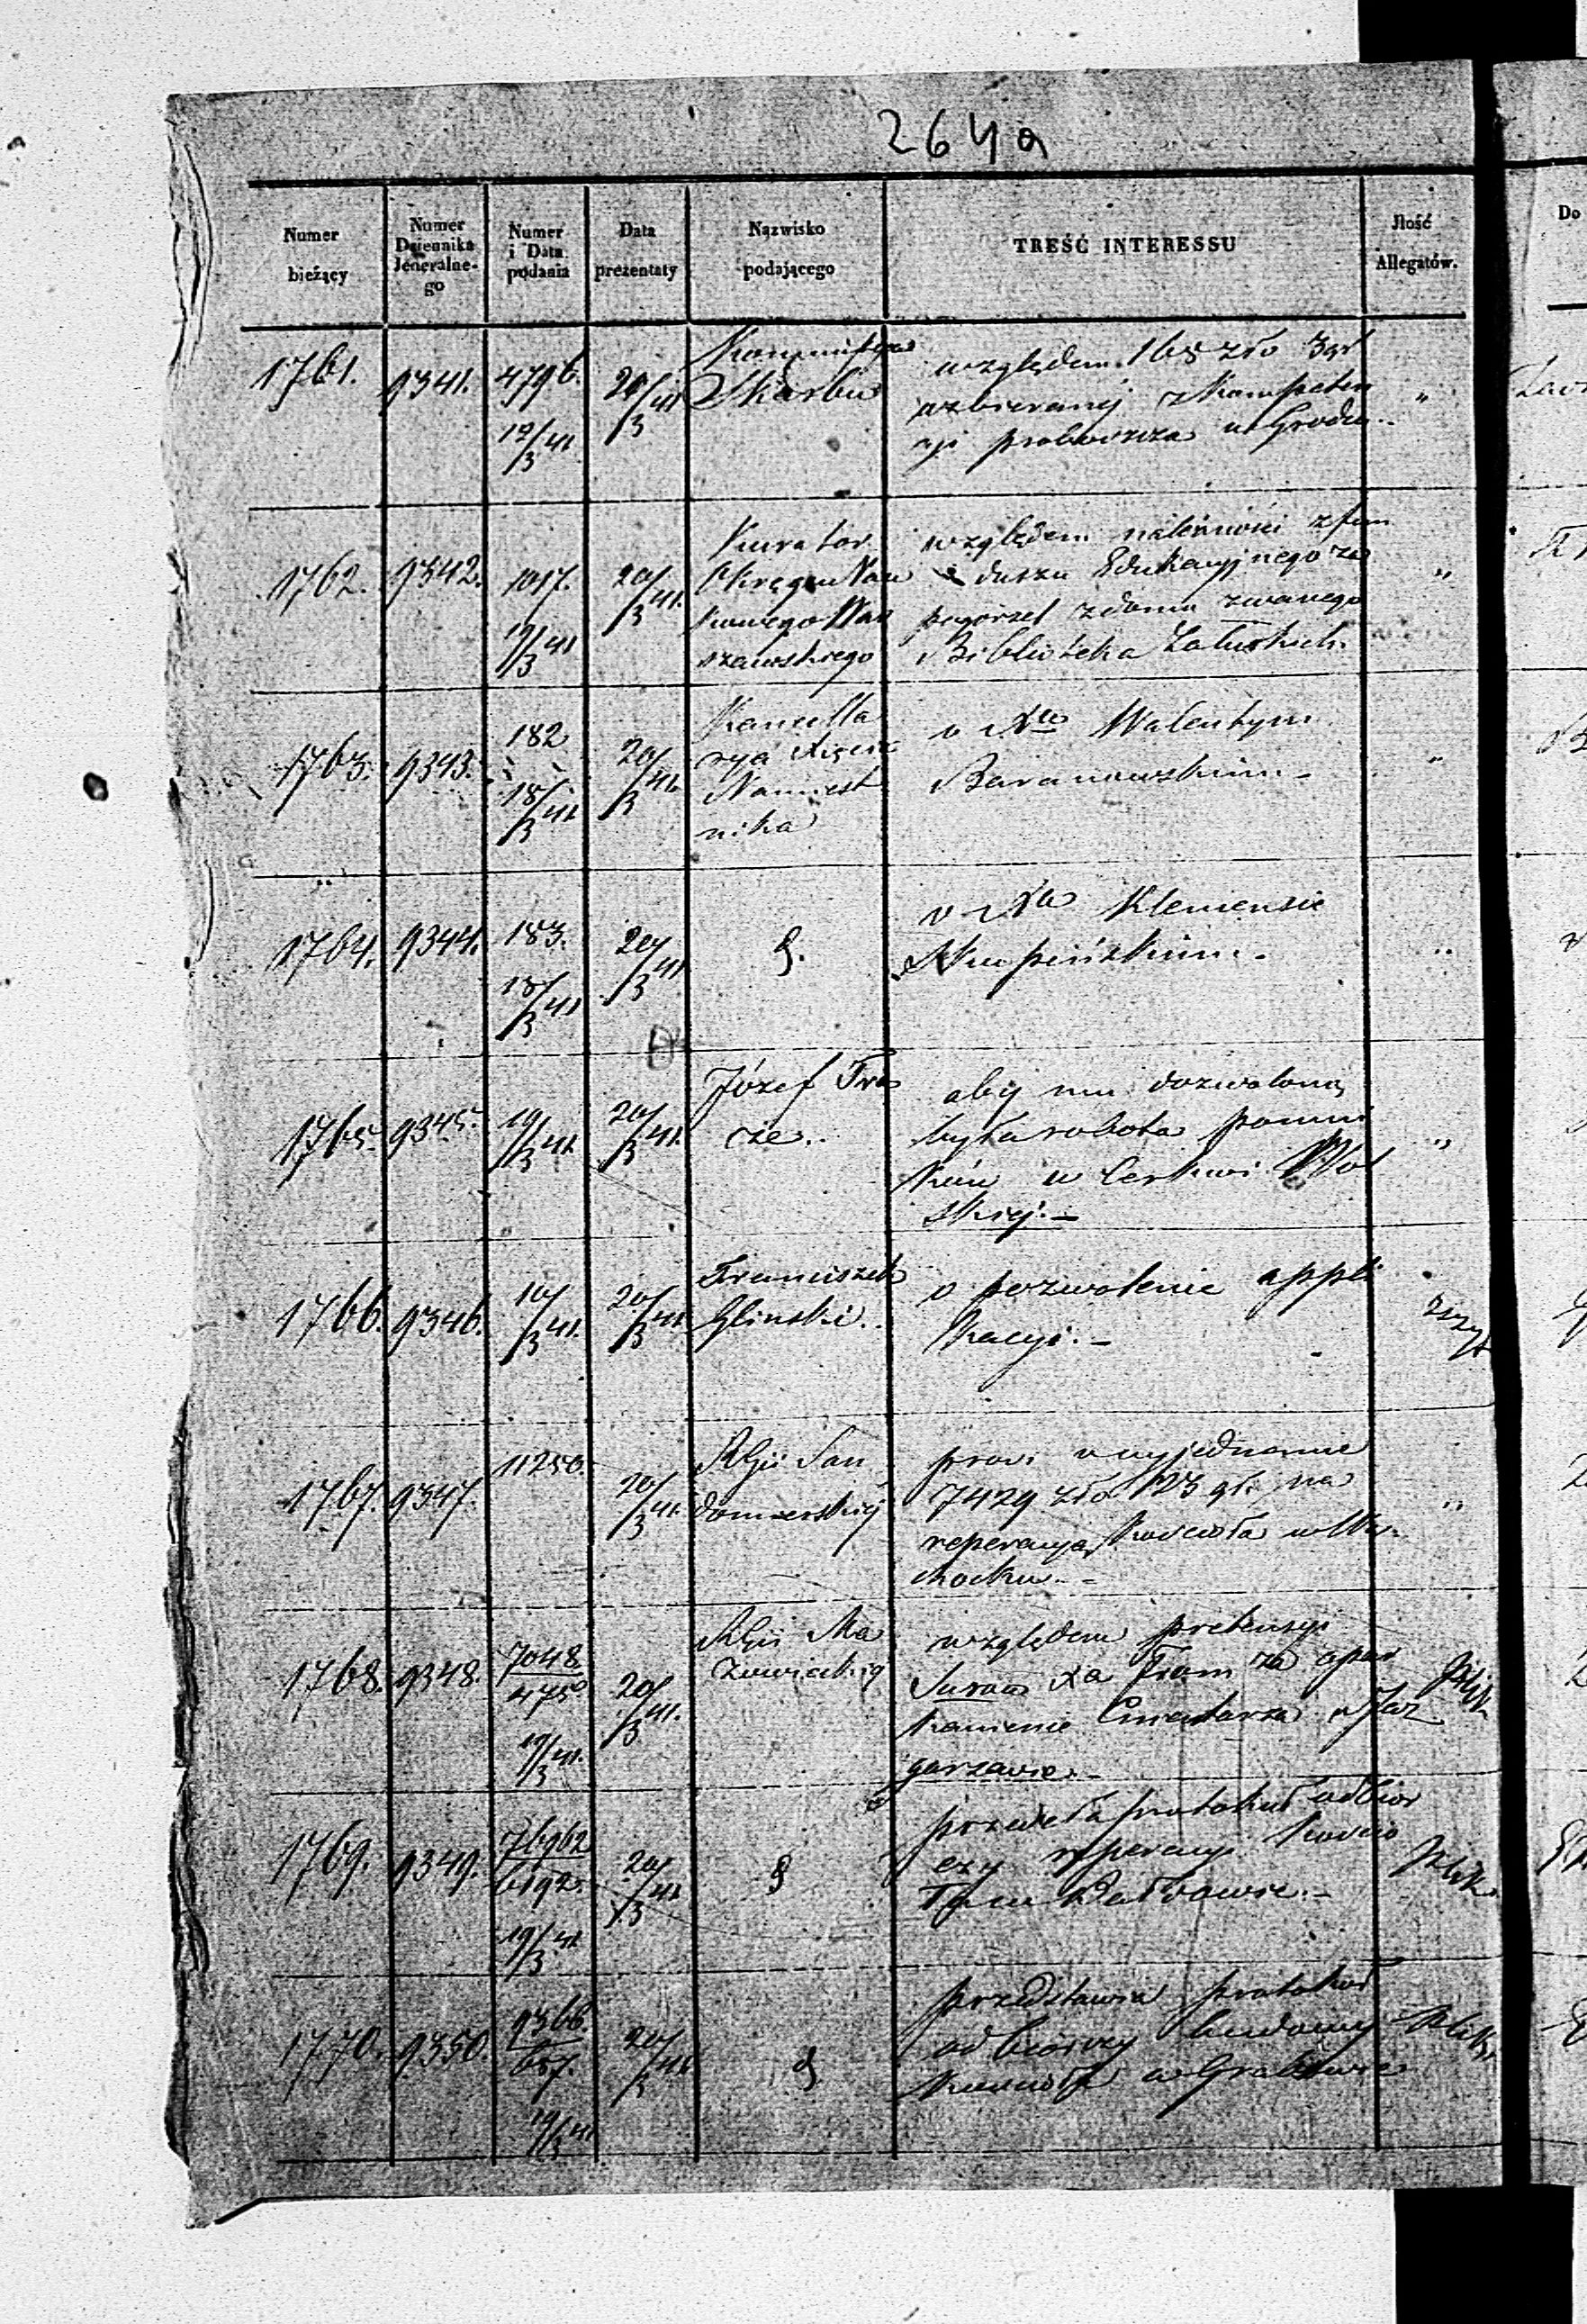 264a
Numer bieżący
Numer Dziennika Jeneralne-go
Numer i Data podania
Data prezentaty
Nazwisko podającego
TREŚĆ INTERESSU
Jlość Allegatów.
Do
1761. 9341. 4796. 12/3 41. 20/3 41
Kommissya
Skarbu
względem 165 zło 3 gr
pobieranej z Kompeten
cyi proboszcza w
"
1762. 9342. 1017. 19/3 41 20/3 41.
Kurator
Okręgu Nau
kowego War
szawskiego
względem należności z fun
duszu Edukacyjnego za
pogorzel z domu zwanego
Biblioteka Załuskich.
"
1763. 9343. 182 18/3 41 20/3 41.
Kancella
rya Xięcia
Namiest
nika
o Xu Walentym
Baranowskim. -
"
1764. 9344. 183. 18/3 41 20/3 41
o Xu Klemensie
Skupińskim. -
"
1765. 9345. 19/3 41. 20/3 41.
Józef
aby mu dozwoloną
była robota pomni
ków w Cerkwi Wol
skiej. -
"
1766. 9346. 19/3 41. 20/3 41.
Franciszek
Glinski.
o pozwolenie appli
kacyi. -
1767. 9347. 11250. 20/3 41.
RGu San
domierskiej
prosi o wyjednanie
7429 zło 23 gr. na
reperacyą Kościoła w Wą
chocku. -
"
1768. 9348. 7048/475 19/3 41. 20/3 41.
RGu Ma
zowieckiej
względem pretensyi
Xa
kanienie Cmentarza w Jaz
garzewie. -
1769. 9349. 76962/6192. 19/3 41 20/3 41
przesyła protokuł odbior
czy reperacyi Kościo
ła w
1770. 9350. 9366/657. 19/3 41 20/3 41
przedstawia protokuł
odbiorczy budowy
Kościoła w Grabowie